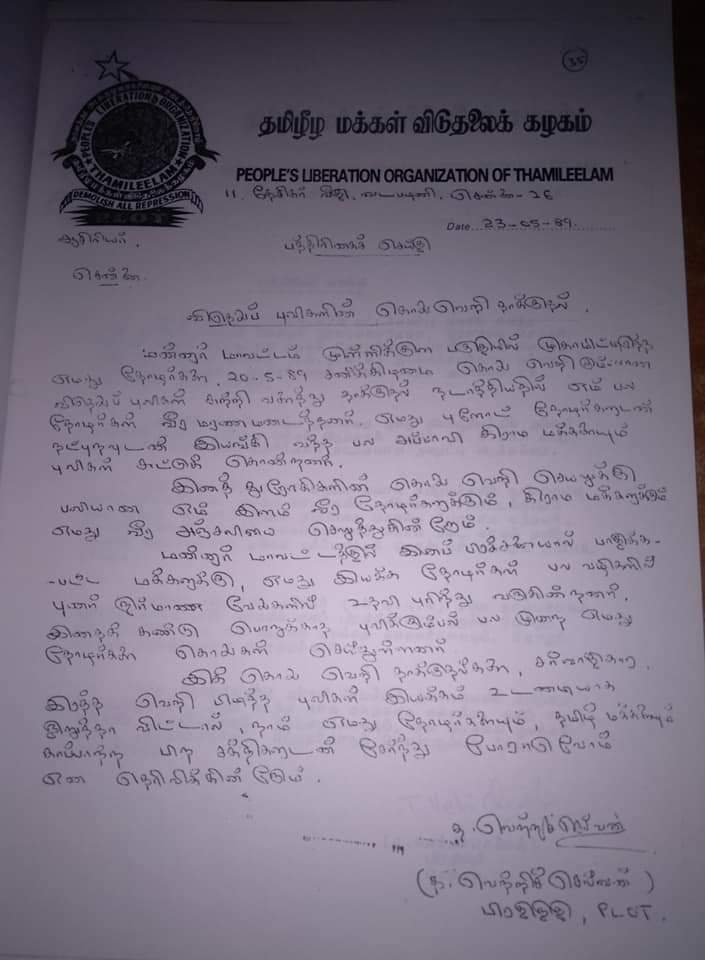 35
PEOPLES LIBERATION ORGANIZATION
THAMILEELAM
DEMOLISH ALL REPRESSION
PLOT
தமிழீழ மக்கள் விடுதலைக் கழகம்
PEOPLE'S LIBERATION ORGANIZATION OF THAMILEELAM
11, தேசிகர் வீதி, வடபழனி, சென்னை - 26
Date 23-05-89
ஆசிரியர்,
பத்திரிகைச் செய்தி
சென்னை.
விடுதலைப் புலிகளின் கொலைவெறி தாக்குதல்.
மன்னார் மாவட்டம் முள்ளிக்குள பகுதியில் முகாமிட்டிருந்த
எமது தோழர்கள், 20-5-89 சனிக்கிழமை கொலை வெறி
புலிகள் சுற்றி வளைத்து தாக்குதல் நடாத்தியதில் எம் பல
தோழர்கள் வீர மரணமடைந்தனர். எமது புளொட் தோழர்களுடன்
நட்புறவுடன் இயங்கி வந்த பல அப்பாவி கிராம மக்களையும்
புலிகள் சுட்டுக் கொன்றனர்.
இனத் துரோகிகளின் கொலை வெறி செயலுக்கு
பலியான எம் இளம் வீர தோழர்களுக்கும், கிராம மக்களுக்கும்
எமது வீர அஞ்சலியை செலுத்துகின்றோம்.
மன்னார் மாவட்டத்தில் இனப் பிரச்சனையால் பாதிக்க-
-பட்ட மக்களுக்கு, எமது இயக்க தோழர்கள் பல வழிகளில்
புனர் நிர்மாண வேலைகளில் உதவி புரிந்து வருகின்றனர்.
இதனைக் கண்டு பொறுக்காத புலிக்கும்பல் பல முறை எமது
தோழர்களை கொலைகள் செய்துள்ளனர்
இக் கொலை வெறி தாக்குதல்களை, சர்வாதிகார
இரத்த வெறி பிடித்த புலிகள் இயக்கம் உடனடியாக
நிறுத்தா விட்டால், நாம் எமது தோழர்களையும், தமிழ் மக்களையும்
காப்பாற்ற பிற சக்திகளுடன் சேர்ந்து போராடுவோம்
என தெரிவிக்கின்றோம்.
த. வெற்றிச்செல்வன்
(த. வெற்றிச்செல்வன்)
பிரதிநிதி, PLOT.